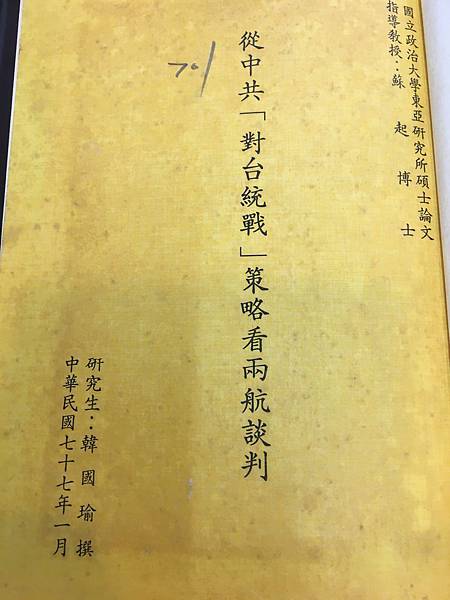 國立政治大學東亞研究所碩士論文
指導教授：蘇起博士
從中共「對台統戰」策略看兩航談判
研究生：韓國瑜撰
中華民國七十七年一月